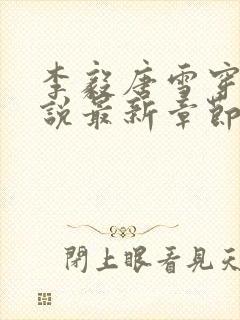 李毅唐雪穿
說最新章節
閉上眼看見天